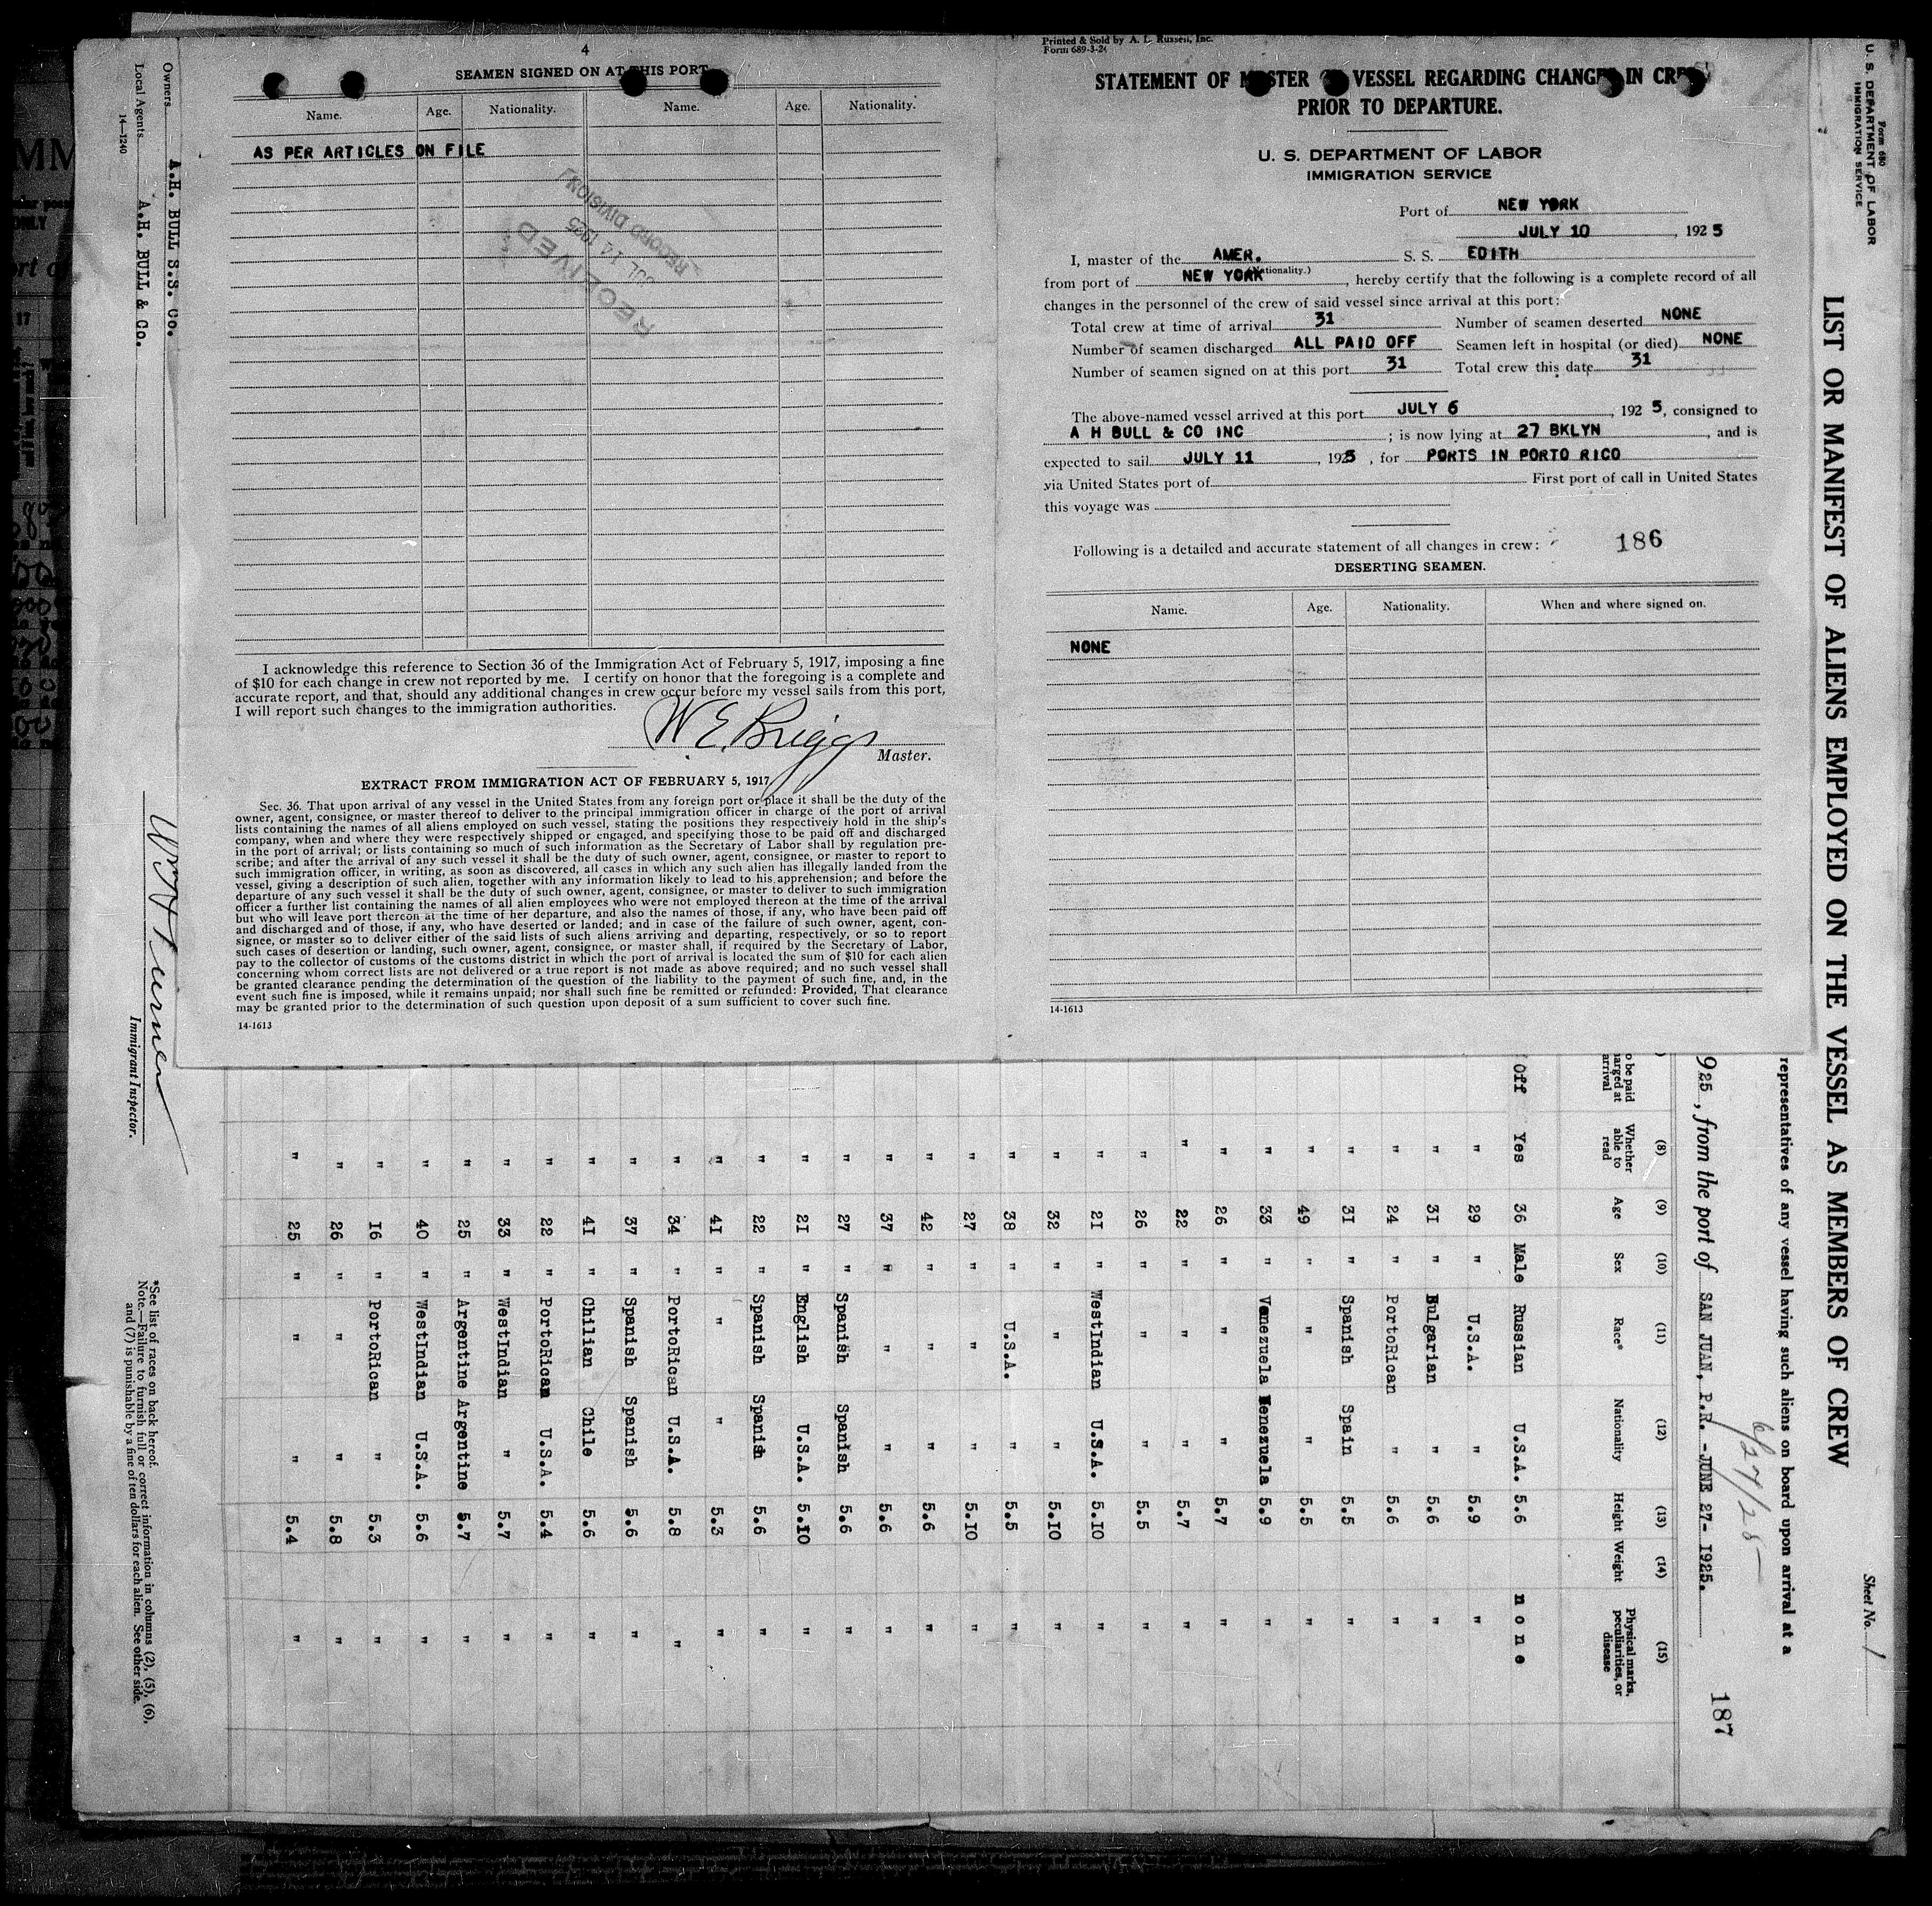 4
SEAMEN SIGNED ON AT THIS PORT
Name. Age. Nationality. Name. Age. Nationality.
AS PER ARTICLES ON FILE
RECEIVED
JUL 14 1925
RECORD DIVISION
I acknowledge this reference to Section 36 of the Immigration Act of February 5, 1917, imposing a fine
of $10 for each change in crew not reported by me. I certify on honor that the foregoing is a complete and
accurate report, and that, should any additional changes in crew occur before my vessel sails from this port,
I will report such changes to the immigration authorities.
W E. Briggs
Master.
EXTRACT FROM IMMIGRATION ACT OF FEBRUARY 5, 1917.
Sec. 36. That upon arrival of any vessel in the United States from any foreign port or place it shall be the duty of the
owner, agent, consignee, or master thereof to deliver to the principal immigration officer in charge of the port of arrival
lists containing the names of all aliens employed on such vessel, stating the positions they respectively hold in the ship's
company, when and where they were respectively shipped or engaged, and specifying those to be paid off and discharged
in the port of arrival; or lists containing so much of such information as the Secretary of Labor shall by regulation pre-
scribe; and after the arrival of any such vessel it shall be the duty of such owner, agent, consignee, or master to report to
such immigration officer, in writing, as soon as discovered, all cases in which any such alien has illegally landed from the
vessel, giving a description of such alien, together with any information likely to lead to his apprehension; and before the
departure of any such vessel it shall be the duty of such owner, agent, consignee, or master to deliver to such immigration
officer a further list containing the names of all alien employees who were not employed thereon at the time of the arrival
but who will leave port thereon at the time of her departure, and also the names of those, if any, who have been paid off
and discharged and of those, if any, who have deserted or landed; and in case of the failure of such owner, agent, con-
signee, or master so to deliver either of the said lists of such aliens arriving and departing, respectively, or so to report
such cases of desertion or landing, such owner, agent, consignee, or master shall, if required by the Secretary of Labor,
pay to the collector of customs of the customs district in which the port of arrival is located the sum of $10 for each alien
concerning whom correct lists are not delivered or a true report is not made as above required; and no such vessel shall
be granted clearance pending the determination of the question of the liability to the payment of such fine, and, in the
event such fine is imposed, while it remains unpaid; nor shall such fine be remitted or refunded: Provided, That clearance
may be granted prior to the determination of such question upon deposit of a sum sufficient to cover such fine.
14-1613
Printed & Sold by A. L. Russell, Inc.
Form 689-3-24
STATEMENT OF MASTER OF VESSEL REGARDING CHANGES IN CREW
PRIOR TO DEPARTURE.
U. S. DEPARTMENT OF LABOR
IMMIGRATION SERVICE
Port of NEW YORK
JULY 10, 1925
I, master of the AMER. S. S. EDITH
(Nationality.)
from port of NEW YORK, hereby certify that the following is a complete record of all
changes in the personnel of the crew of said vessel since arrival at this port:
Total crew at time of arrival 31 Number of seamen deserted NONE
Number of seamen discharged ALL PAID OFF Seamen left in hospital (or died) NONE
Number of seamen signed on at this port 31 Total crew this date 31
The above-named vessel arrived at this port JULY 6, 1925, consigned to
A H BULL & CO INC; is now lying at 27 BKLYN, and is
expected to sail JULY 11, 1925, for PORTS IN PORTO RICO
via United States port of First port of call in United States
this voyage was
Following is a detailed and accurate statement of all changes in crew: 186
DESERTING SEAMEN.
Name. Age. Nationality. When and where signed on.
NONE
14-1613
Form 680
U. S. DEPARTMENT OF LABOR
IMMIGRATION SERVICE
Sheet No. 1
LIST OR MANIFEST OF ALIENS EMPLOYED ON THE VESSEL AS MEMBERS OF CREW
representatives of any vessel having such aliens on board upon arrival at a
6/27/25
925, from the port of SAN JUAN, P.R. -JUNE 27- 1925.
187
(8) (9) (10) (11) (12) (13) (14) (15)
o be paid
arged at
arrival
Whether able to read Age Sex Race* Nationality Height Weight Physical marks, peculiarities, or disease
Off Yes 36 Male Russian U.S.A. 5.6 none
" 29 " U.S.A. " 5.9 "
" 31 " Bulgarian " 5.6 "
" 24 " PortoRican " 5.6 "
" 31 " Spanish Spain 5.5 "
" 49 " " " 5.5 "
" 33 " Venezuela Venezuela 5.9 "
" 26 " " " 5.7 "
" 22 " " " 5.7 "
" 26 " " " 5.5 "
" 21 " WestIndian U.S.A. 5.10 "
" 32 " " " 5.10 "
" 38 " U.S.A. " 5.5 "
" 27 " " " 5.10 "
" 42 " " " 5.6 "
" 37 " " " 5.6 "
" 27 " Spanish Spanish 5.6 "
" 21 " English U.S.A. 5.10 "
" 22 " Spanish Spanish 5.6 "
" 41 " " " 5.3 "
" 34 " PortoRican U.S.A. 5.8 "
" 37 " Spanish Spanish 5.6 "
" 41 " Chilian Chile 5.6 "
" 22 " PortoRican U.S.A. 5.4 "
" 33 " WestIndian " 5.7 "
" 25 " Argentine Argentine 5.7 "
" 40 " WestIndian U.S.A. 5.6 "
" 16 " PortoRican " 5.3 "
" 26 " " " 5.8 "
" 25 " " " 5.4 "
Owners A.H. BULL S.S. Co.
Local Agents A.H. BULL & Co.
14-1240
Immigrant Inspector.
*See list of races on back hereof.
Note.—Failure to furnish full or correct information in columns (2), (5), (6),
and (7) is punishable by a fine of ten dollars for each alien. See other side.